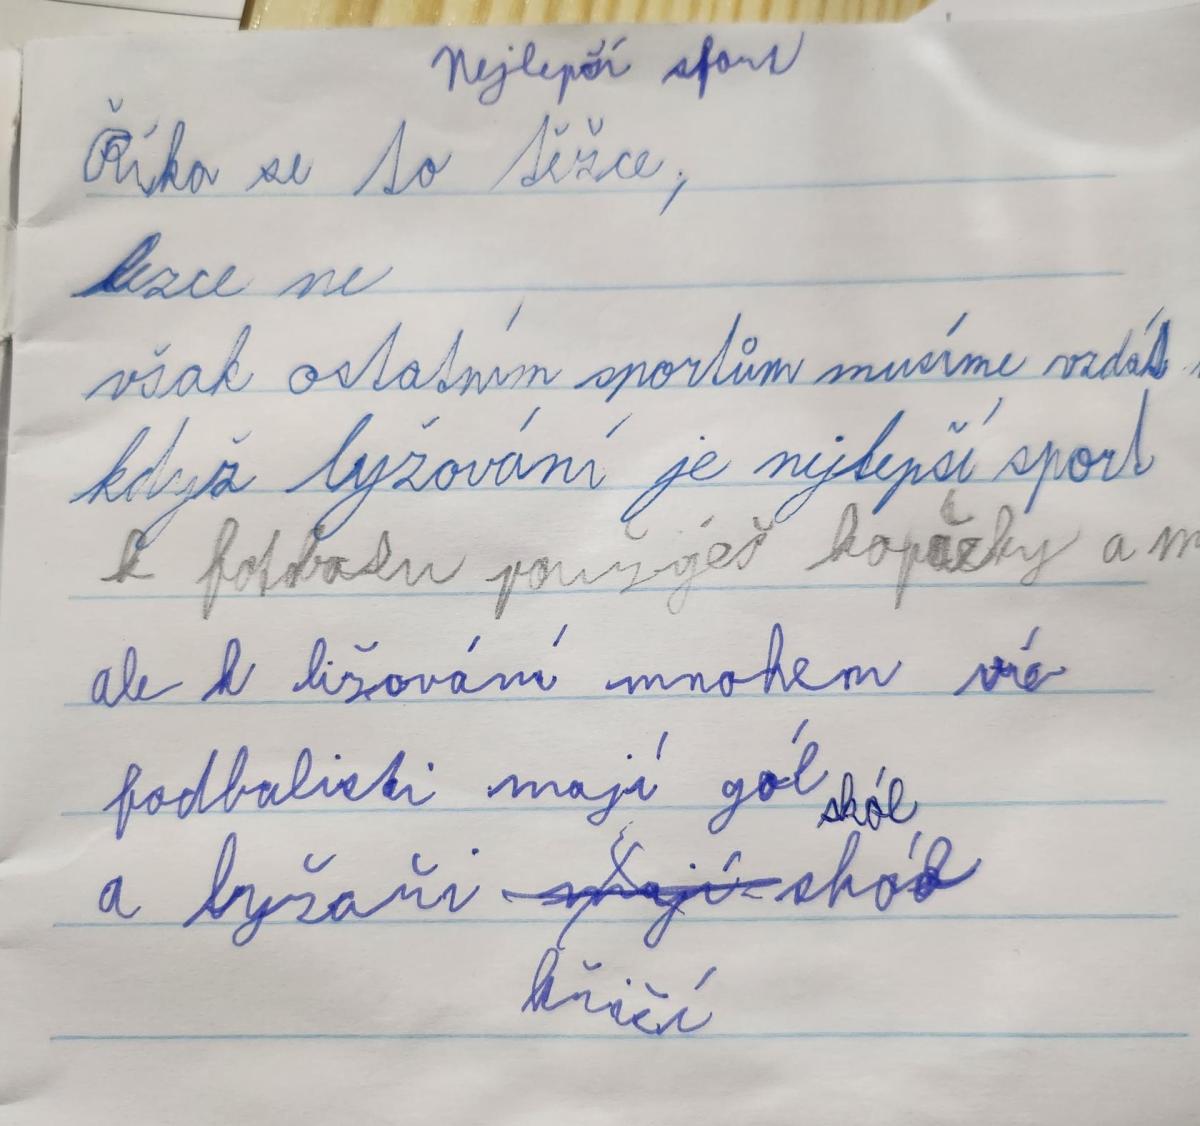 Nejlepší sport
Říka se to těžce,
lezce ne
však ostatním sportům musíme vzdát
když lyžování je nejlepší sport
k fotbalu použiješ kopačky a m
ale k ližování mnohem víc
fodbalisti mají gól
skól
a lyžaři mají skól
křičí